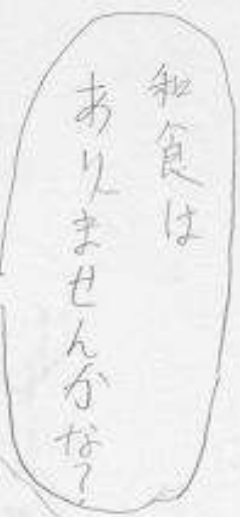 和食は
ありませんかな？